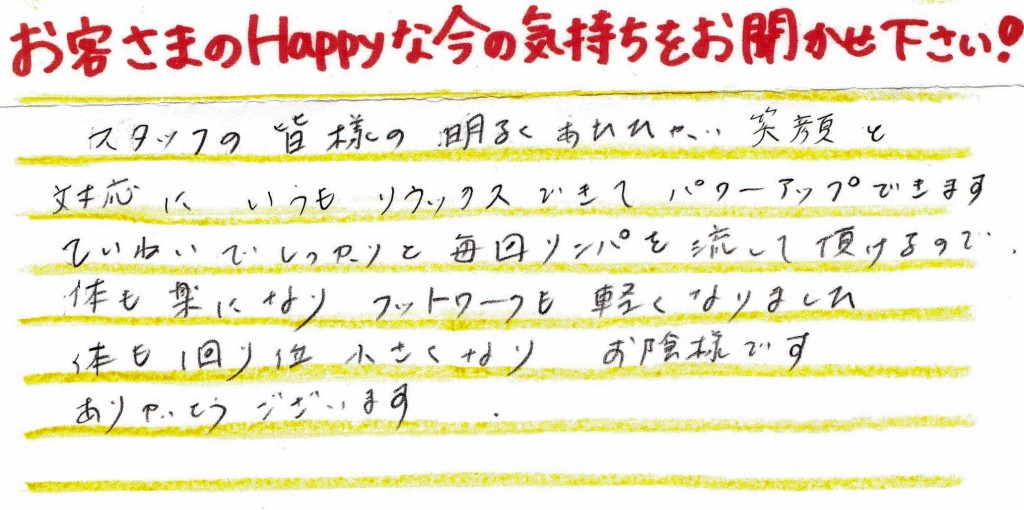 お客さまのHappyな今の気持ちをお聞かせ下さい!
スタッフの 皆様の 明るく あたたかい 笑顔と
対応に いつも リラックスできて パワーアップできます
ていねいでしっかりと 毎回リンパを 流して 頂けるので、
体も 楽になり フットワークも 軽くなりました
体も 1回り位 小さくなり お陰様です
ありがとうございます.